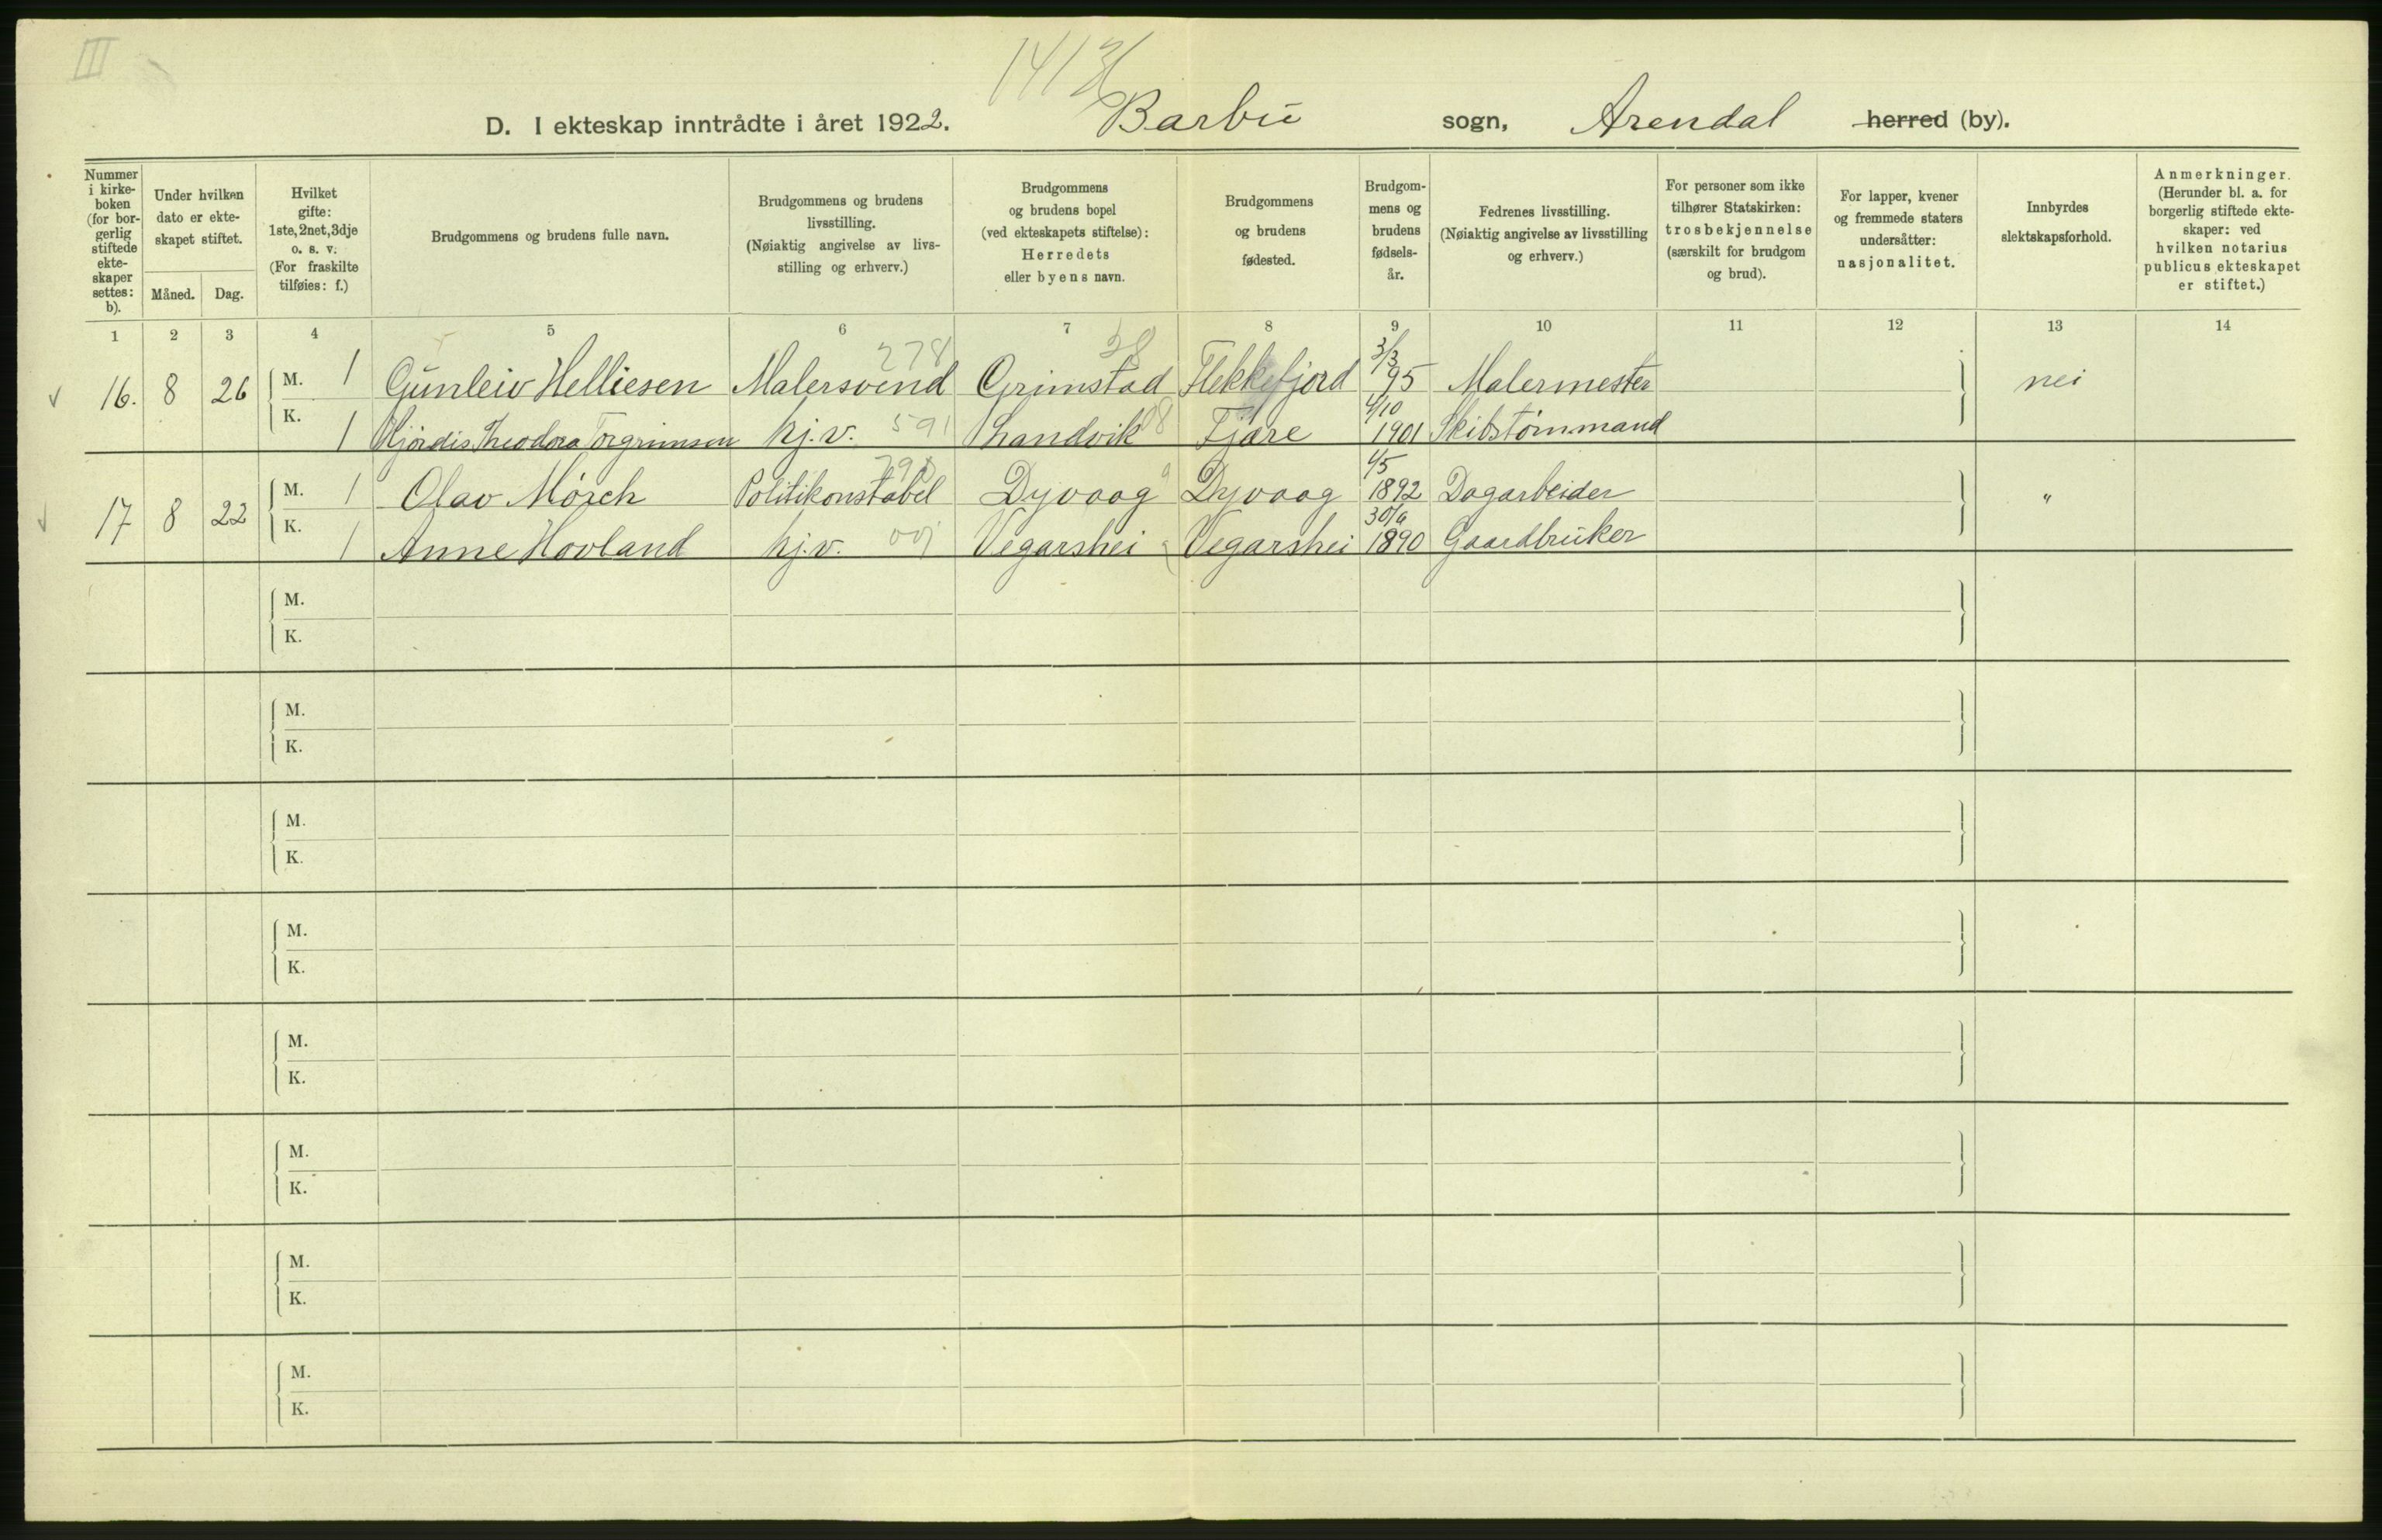 III
D. I ekteskap inntrådte i året 1922. Barbu sogn, Arendal herred (by).
Nummer i kirkeboken (for borgerlig stiftede ekteskaper settes: b).
Under hvilken dato er ekteskapet stiftet.
Måned. Dag.
Hvilket gifte: 1ste, 2net, 3dje o. s. v. (For fraskilte tilføies: f.)
Brudgommens og brudens fulle navn.
Brudgommens og brudens livsstilling. (Nøiaktig angivelse av livsstilling og erhverv.)
Brudgommens og brudens bopel (ved ekteskapets stiftelse): Herredets eller byens navn.
Brudgommens og brudens fødested.
Brudgommens og brudens fødselsår.
Fedrenes livsstilling. (Nøiaktig angivelse av livsstilling og erhverv.)
For personer som ikke tilhører Statskirken: trosbekjennelse (særskilt for brudgom og brud).
For lapper, kvener og fremmede staters undersåtter: nasjonalitet.
Innbyrdes slektskapsforhold.
Anmerkninger. (Herunder bl. a. for borgerlig stiftede ekteskaper: ved hvilken notarius publicus ekteskapet er stiftet.)
1 2 3 4 5 6 7 8 9 10 11 12 13 14
278 28 3/3
16. 8 26 M. 1 Gunleiv Helliesen Malersvend Grimstad Flekkefjord 95 Malermester nei
591 4/10
K. 1 Hjördis Theodora Torgrimsen hj.v. Landvik Fjære 1901 Skibstømmand
4/5
17 8 22 M. 1 Olav Mörch Politikonstabel Dyvaag Dyvaag 1892 Dagarbeider "
30/9
K. 1 Anne Hovland hj.v. Vegarshei Vegarshei 1890 Gaardbruker
M.
K.
M.
K.
M.
K.
M.
K.
M.
K.
M.
K.
M.
K.
M.
K.